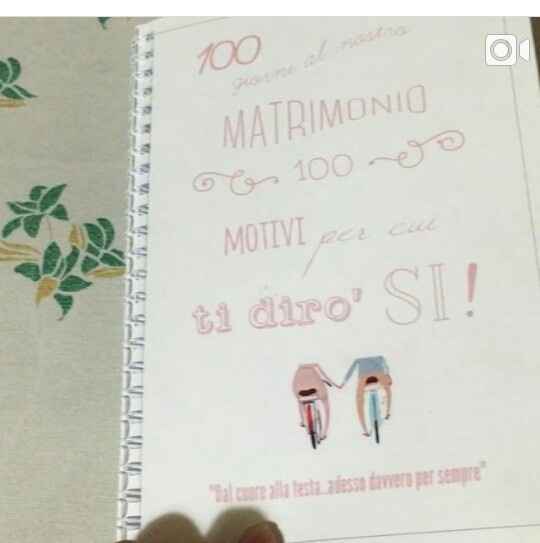 100
giorni al nostro
MATRIMONIO
100
MOTIVI per cui
ti diro' SI!
"Dal cuore alla testa..adesso davvero per sempre"